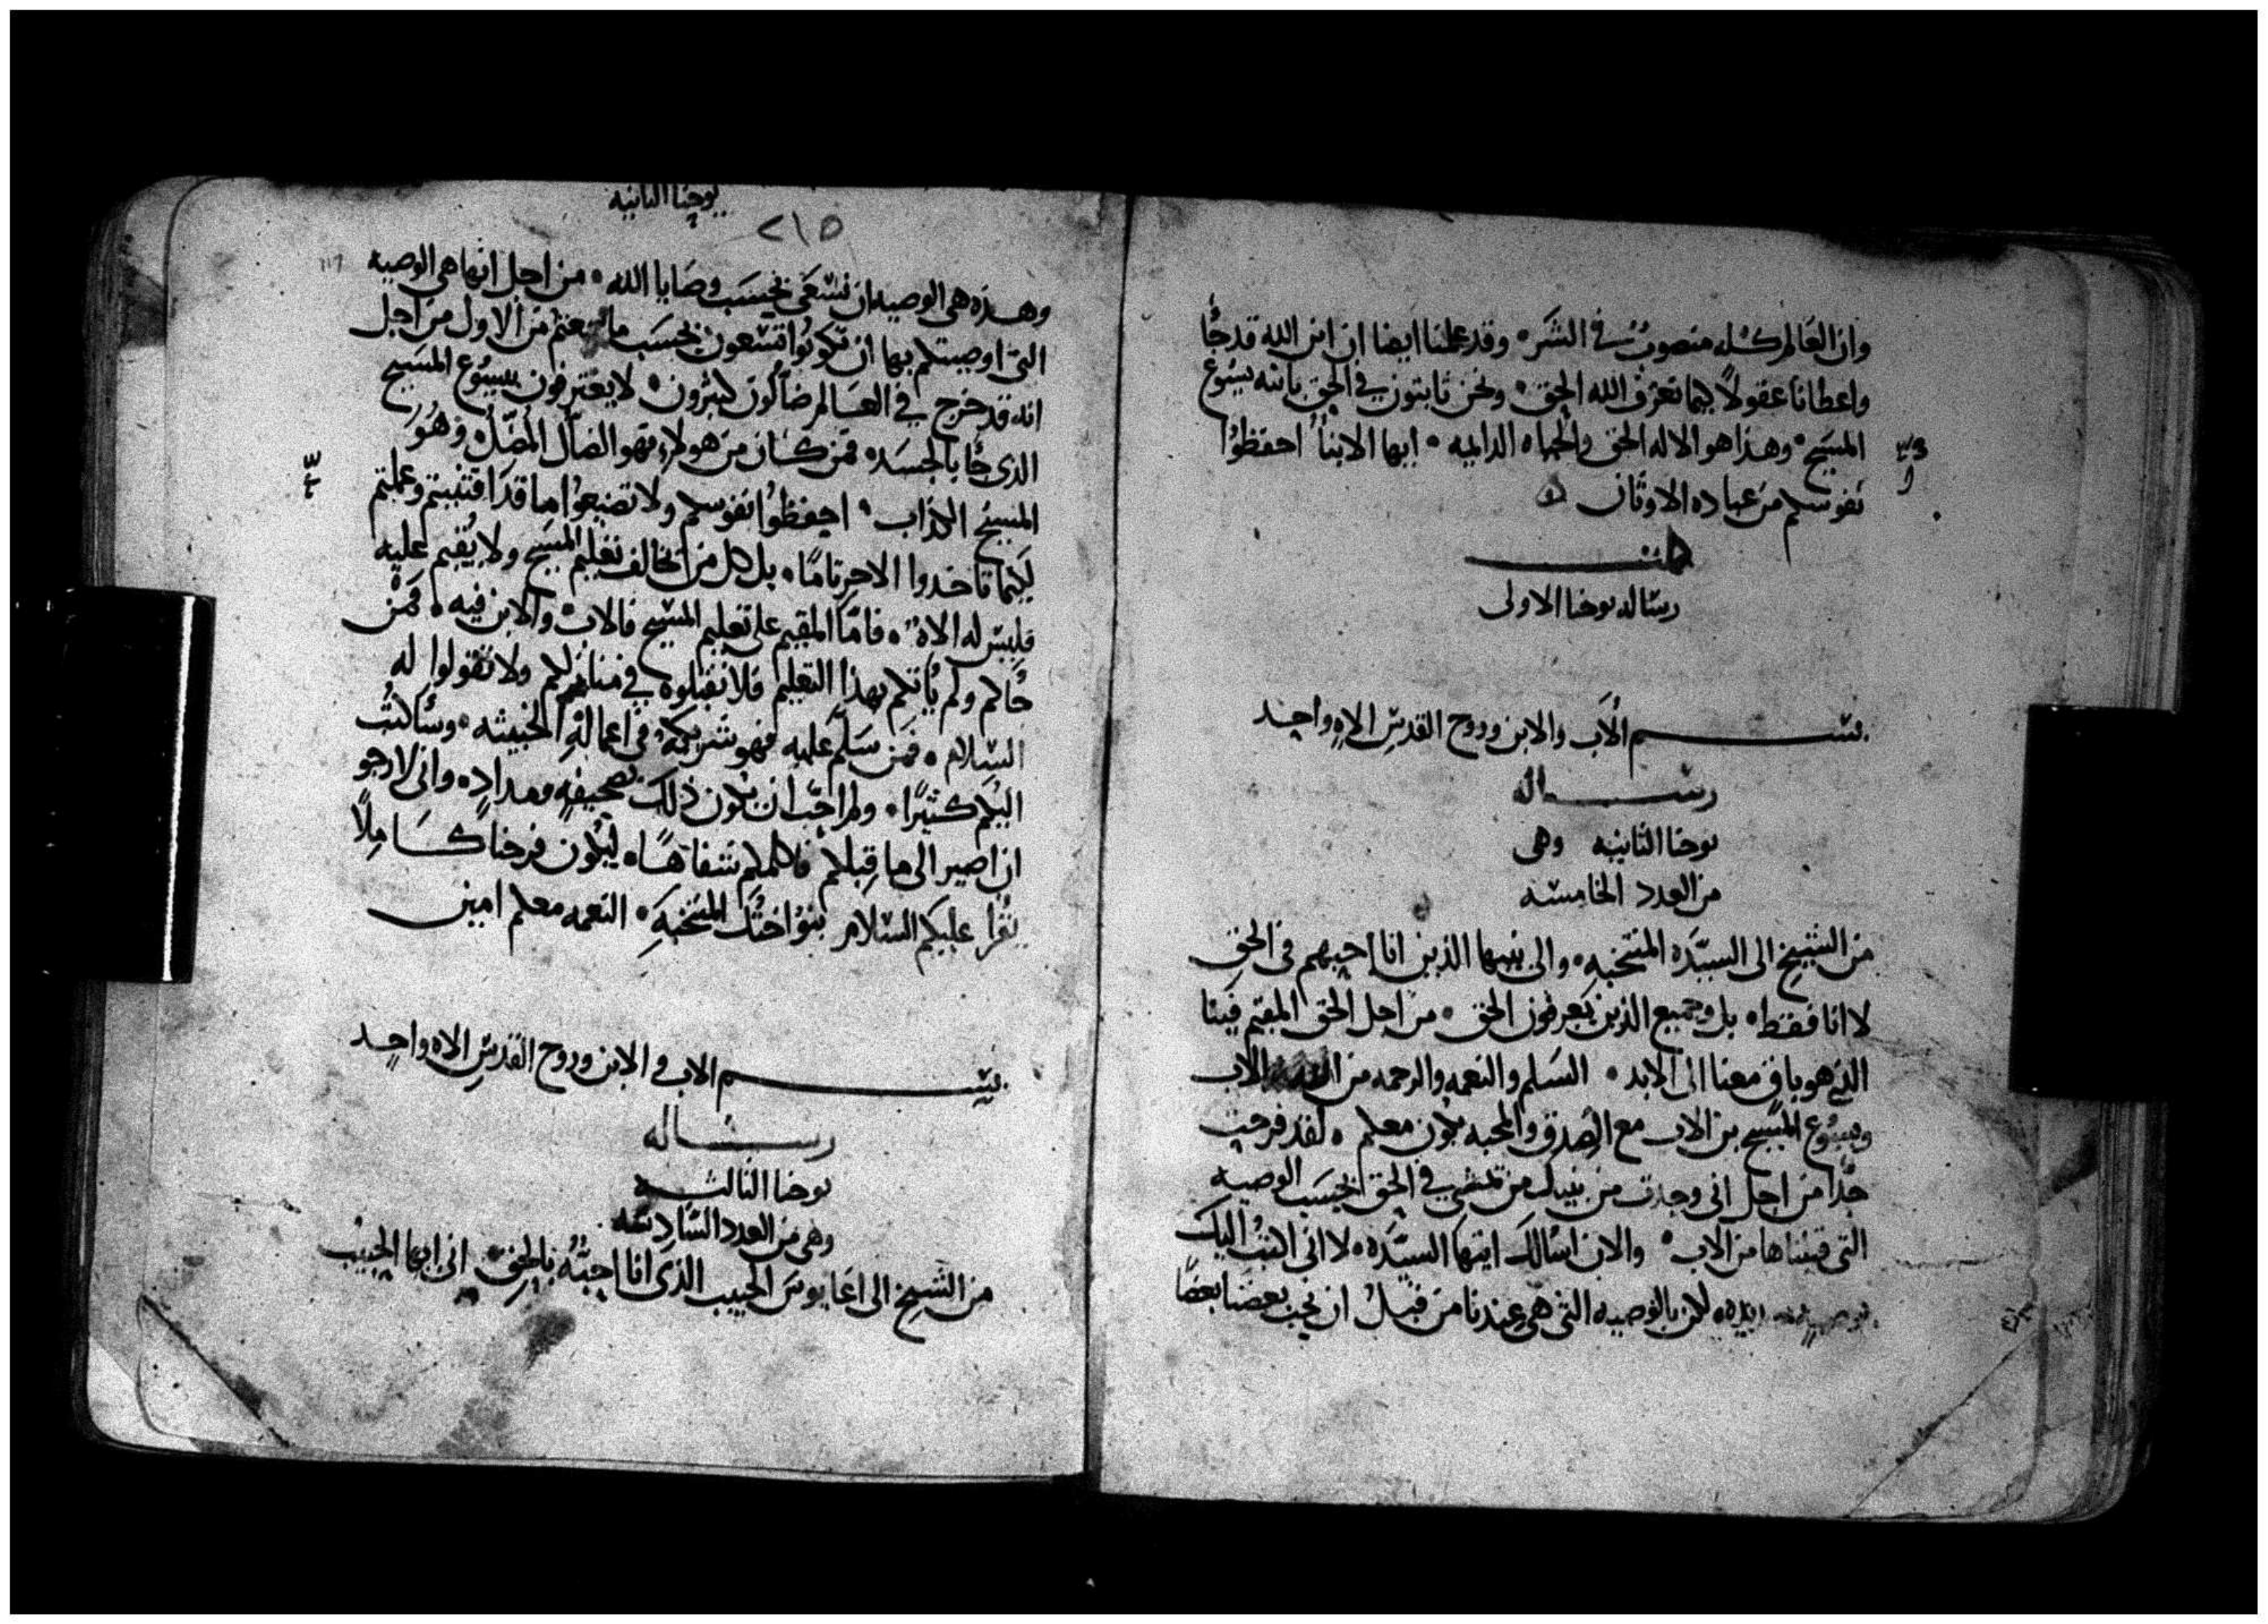 وان العالم كله منصوب في الشر وقد علمنا ايضا ان ابن الله قد جا
واعطانا عقولا كيما نعرف الله الحق ونحن ثابتون في الحق بابنه يسوع
المسيح وهذا هو الاله الحق والحياه الدايمه ايها الابنا احفظوا
نفوسكم من عباده الاوثان
كملت
رساله يوحنا الاولى
بسم الاب والابن وروح القدس الاه واحد
رساله
يوحنا الثانيه وهي
من العدد الخامسه
من الشيخ الى السيده المنتخبه والى بنيها الذين انا احبهم في الحق
لا انا فقط بل وجميع الذين يعرفون الحق من اجل الحق المقيم فينا
الذي هو باق معنا الى الابد السلم والنعمه والرحمه من الله الاب
ويسوع المسيح بن الاب مع الصدق والمحبه يكون معكم لقد فرحت
جدا من اجل اني وجدت من بنيك من تمشي في الحق بحسب الوصيه
التي قبلناها من الاب والان اسالك ايتها السيده لا اني اكتب اليك
لكن بالوصيه التي هي عندنا من قبل ان نحب بعضنا بعضا
يوحنا الثانيه
٢١٥
وهذه هي الوصيه ان نسعى بحسب وصايا الله من اجل انها هي الوصيه
التي اوصيتكم بها ان تكونوا تسعون بحسب ما سمعتم من الاول من اجل
انه قد خرج في العالم ضالون كثيرون لا يعترفون بيسوع المسيح
الذي جا بالجسد فمن كان من هولاء فهو الضال المضل وهو
المسيح الكذاب احفظوا نفوسكم ولا تضيعوا ما قد اقتنيتم وعملتم
لكيما تاخدوا الاجر تاما بل كل من يخالف تعليم المسيح ولا يقيم عليه
فليس له الاه فاما المقيم على تعليم المسيح فالاب والابن فيه فمن
جاكم ولم ياتكم بهذا التعليم فلا تقبلوه في منازلكم ولا تقولوا له
السلام فمن سلم عليه فهو شريكه في اعماله الخبيثه وسأكتب
اليكم كثيرا ولم احب ان يكون ذلك بصحيفه ومداد واني لارجو
ان اصير الى ما قبلكم فاكلمكم شفاها ليكون فرحنا كاملا
يقرا عليكم السلام بنو اختك المنتخبه النعمه معكم امين
بسم الاب والابن وروح القدس الاه واحد
رساله
يوحنا الثالثه
وهي من العدد السادسه
من الشيخ الى اغايوس الحبيب الذي انا احبه بالحق اني ايها الحبيب